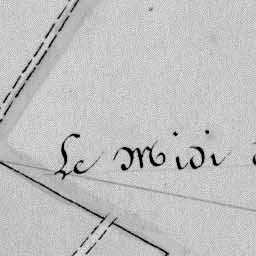 Le Midi